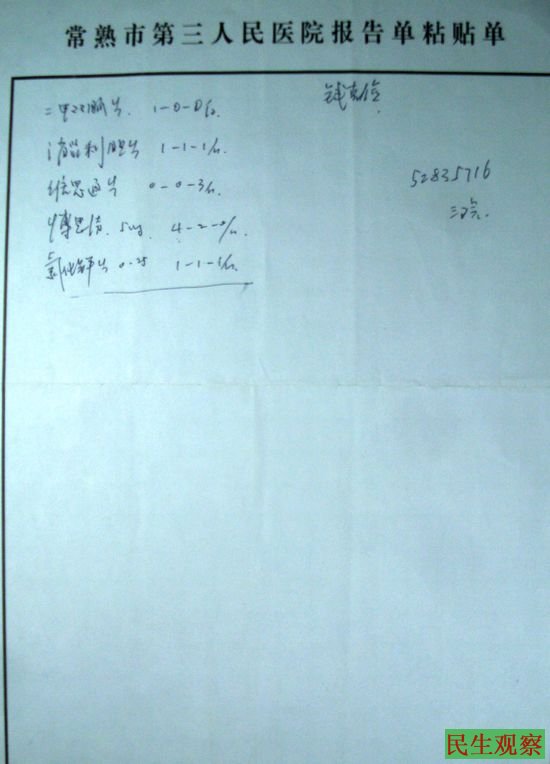 常熟市第三人民医院报告单粘贴单
二甲双胍片 1-0-0/日
钱
消炎利胆片 1-1-1/日
维思通片 0-0-3/日
52835716
博思清 5mg 4-2-0/日
三院
氯化钾片 0.25 1-1-1/日
民生观察